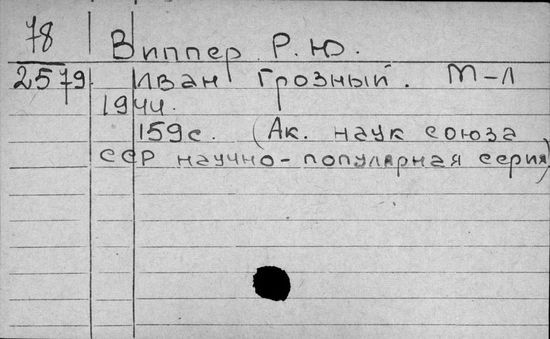 78
Виппер Р.Ю.
2579. Иван Грозный. М-Л
1944.
159с. (Ак. наук союза
ССР научно-популярная серия)